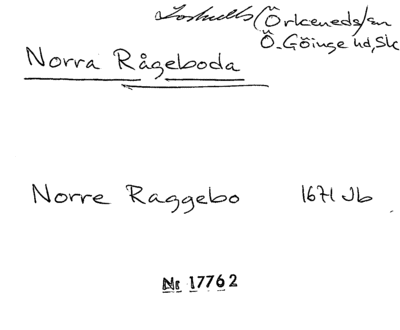 Loshults (Örkeneds) sn
Ö. Göinge hd, Sk
Norra Rågeboda
Norre Raggebo 1671 Jb
Nr 17762